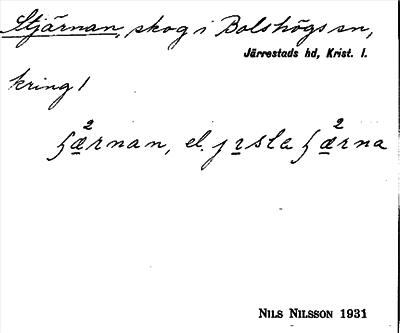 Stjärnan, skog i Bolshögs sn,
Järrestads hd, Krist. l.
kring 1
ʃæ²rnan, el. jɪsla ʃæ²rna
NILS NILSSON 1931